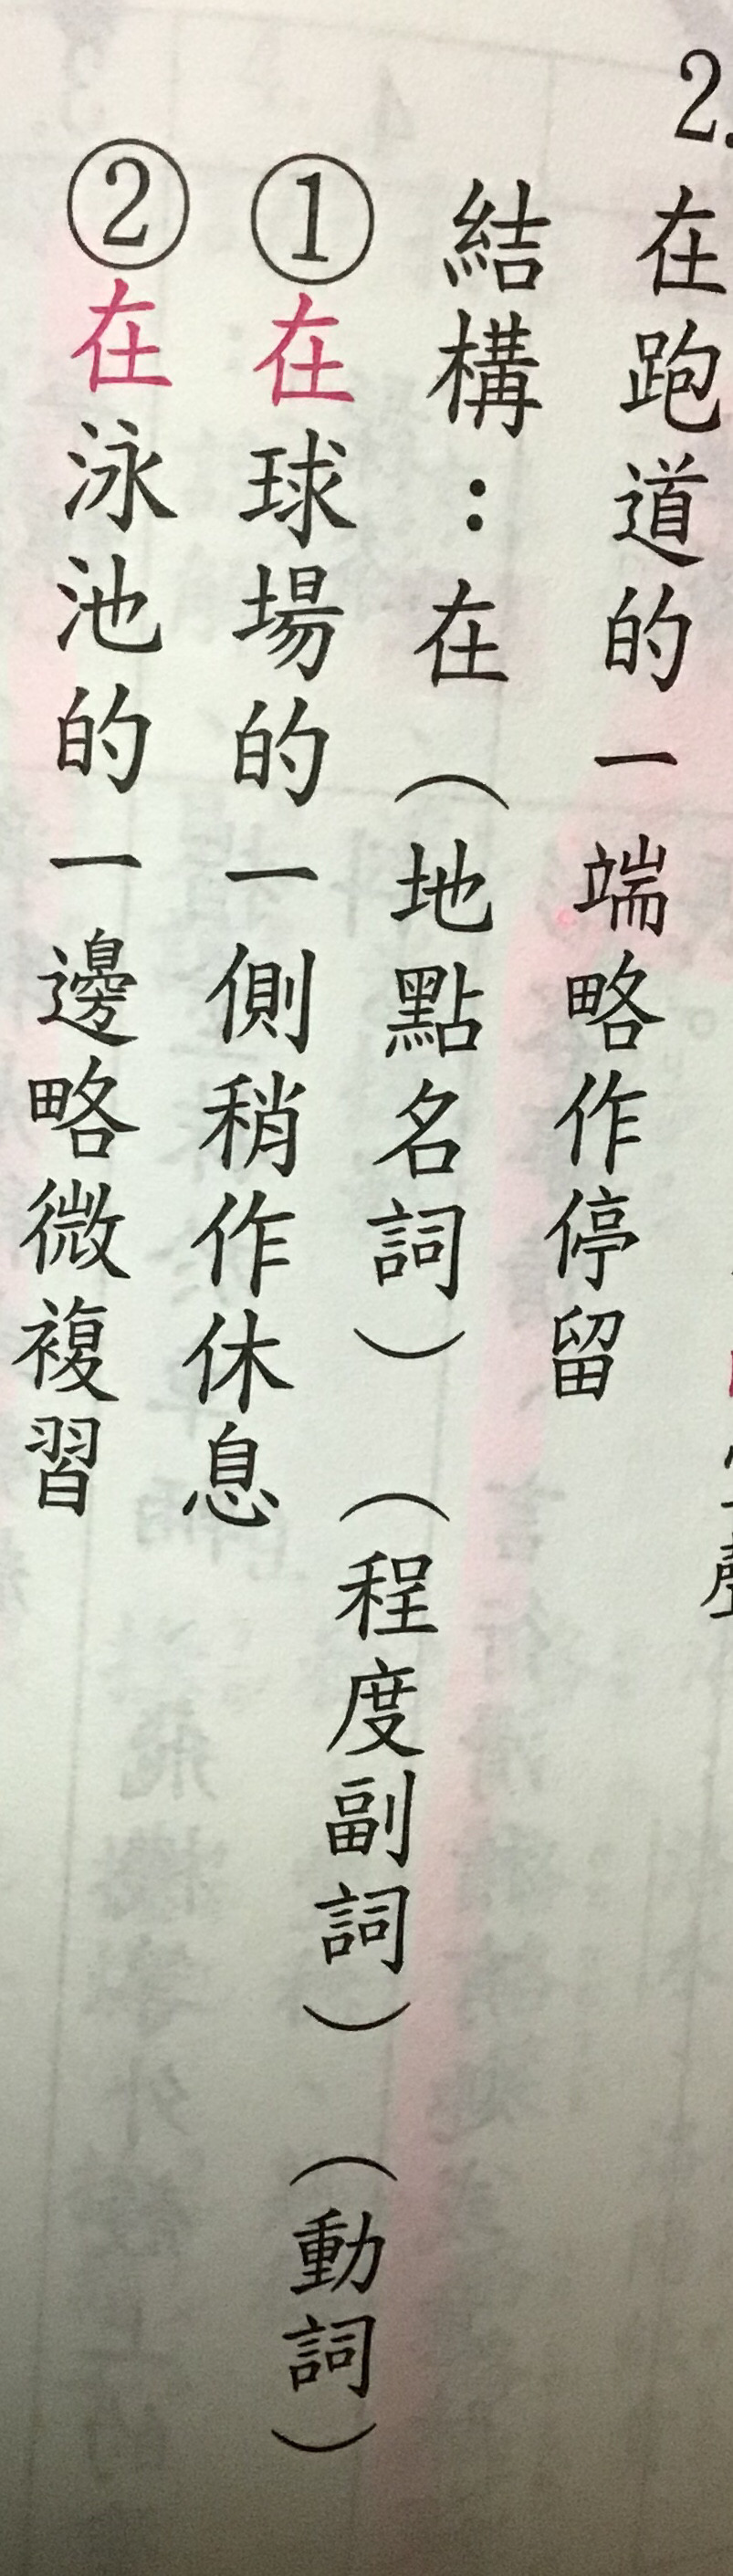 2.在跑道的一端略作停留
結構：在（地點名詞）（程度副詞）（動詞）
①在球場的一側稍作休息
②在泳池的一邊略微複習